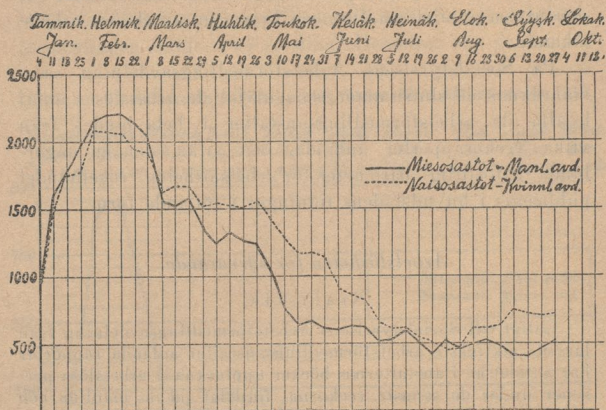 Tammik. Helmik. Maalisk. Huhtik. Toukok. Kesäk. Heinäk. Elok. Syysk. Lokak.
Jan. Febr. Mars April Mai Juni Juli Aug. Sept. Okt.
4 11 18 25 1 8 15 22 1 8 15 22 29 5 12 19 26 3 10 17 24 31 7 14 21 28 5 12 19 26 2 9 16 23 30 6 13 20 27 4 11 18
2500
2000
Miesosastot - Manl. avd.
Naisosastot - Kvinnl. avd.
1500
1000
500